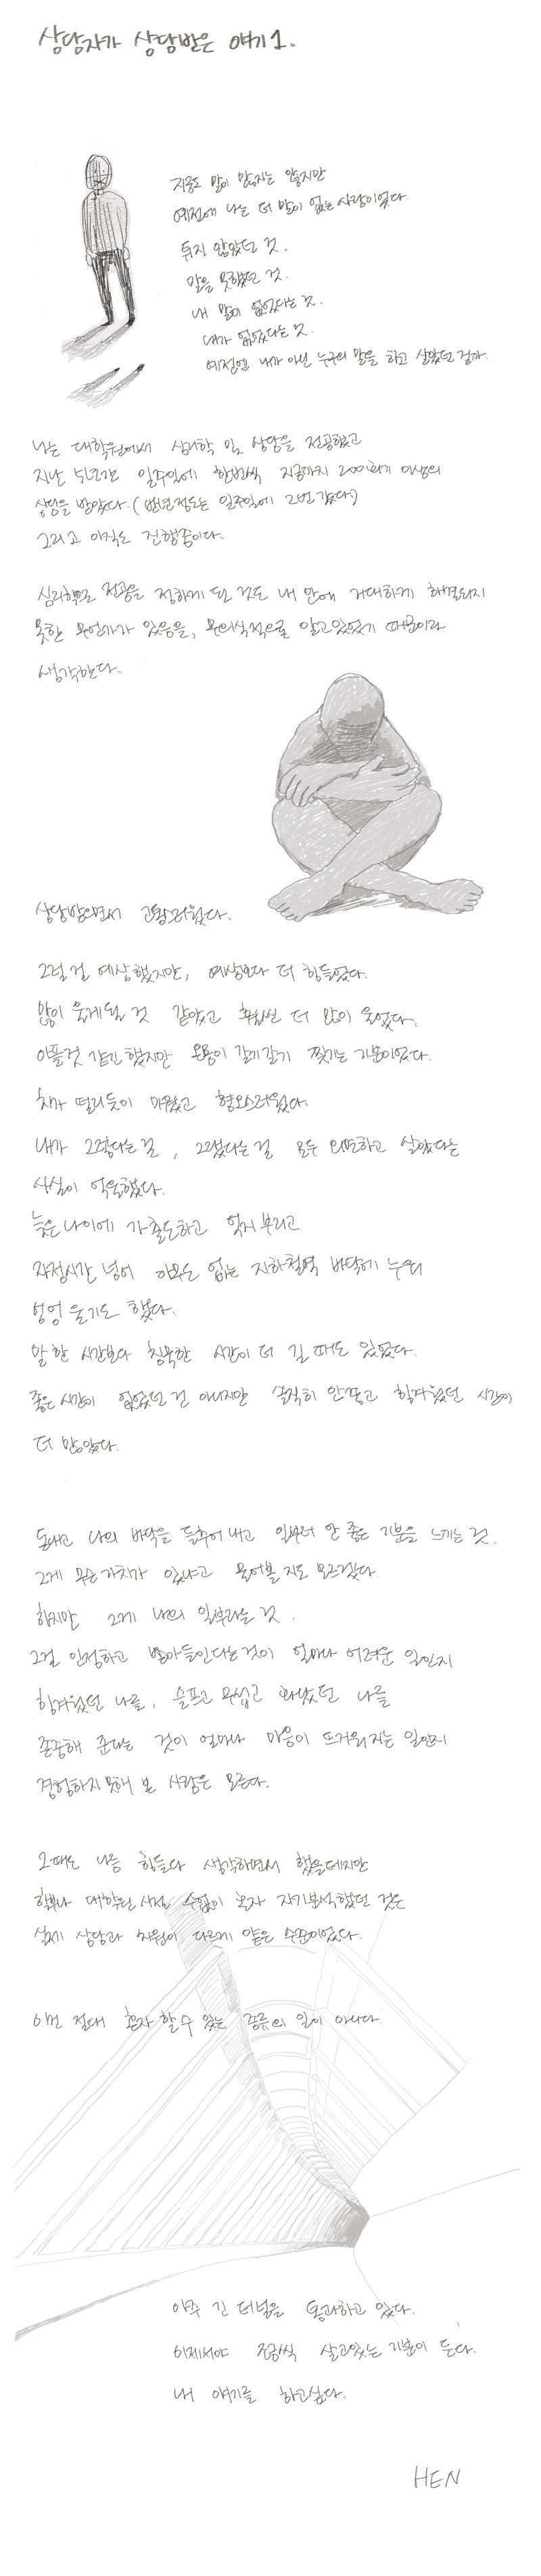 상담자가 상담받은 얘기 1.
지금도 말이 많지는 않지만
예전에 나는 더 말이 없는 사람이었다.
튀지 않았던 것.
말을 못했던 것.
내 말이 없었다는 것.
내가 없었다는 것.
예전엔 내가 아닌 누구의 말을 하고 살았던 걸까.
나는 대학원에서 심리학 및 상담을 전공했고
지난 5년간 일주일에 한번씩 지금까지 200회기 이상의
상담을 받았다. (반년정도는 일주일에 2번 갔다)
그리고 아직도 진행중이다.
심리학으로 전공을 정하게 된 것도 내 안에 거대하게 해결되지
못한 무언가가 있음을, 무의식적으로 알고있었기 때문이라
생각한다.
상담받으면서 고통스러웠다.
그럴걸 예상했지만, 예상보다 더 힘들었다.
많이 울게될 것 같았고 훨씬 더 많이 울었다.
아플것 같긴 했지만 온몸이 갈기갈기 찢기는 기분이었다.
치가 떨리듯이 미웠고 혐오스러웠다.
내가 그렇다는걸, 그랬다는걸 모두 외면하고 살았다는
사실이 억울했다.
늦은나이에 가출도하고 억지부리고
자정시간 넘어 아무도 없는 지하철역 바닥에 누워
엉엉 울기도 했다.
말한 시간보다 침묵한 시간이 더 길 때도 있었다.
좋은시간이 없었던 건 아니지만 솔직히 안좋고 힘겨웠던 시간이
더 많았다.
돈내고 나의 바닥을 들추어 내고 일부러 안 좋은 기분을 느끼는 것.
그게 무슨가치가 있냐고 물어볼 지도 모르겠다.
하지만 그게 나의 일부라는 것.
그걸 인정하고 받아들인다는것이 얼마나 어려운 일인지
힘겨웠던 나를, 슬프고 무섭고 화났던 나를
존중해 준다는 것이 얼마나 마음이 뜨거워지는 일인지
경험하지못해 본 사람은 모른다.
그때도 나름 힘들다 생각하면서 했을테지만
학부나 대학원 시절, 수없이 혼자 자기분석했던 것은
실제 상담과 차원이 다르게 얕은 수준이었다.
이건 절대 혼자 할 수 있는 종류의 일이 아니다.
아주 긴 터널을 통과하고 있다.
이제서야 조금씩 살고있는 기분이 든다.
내 얘기를 하고싶다.
HEN